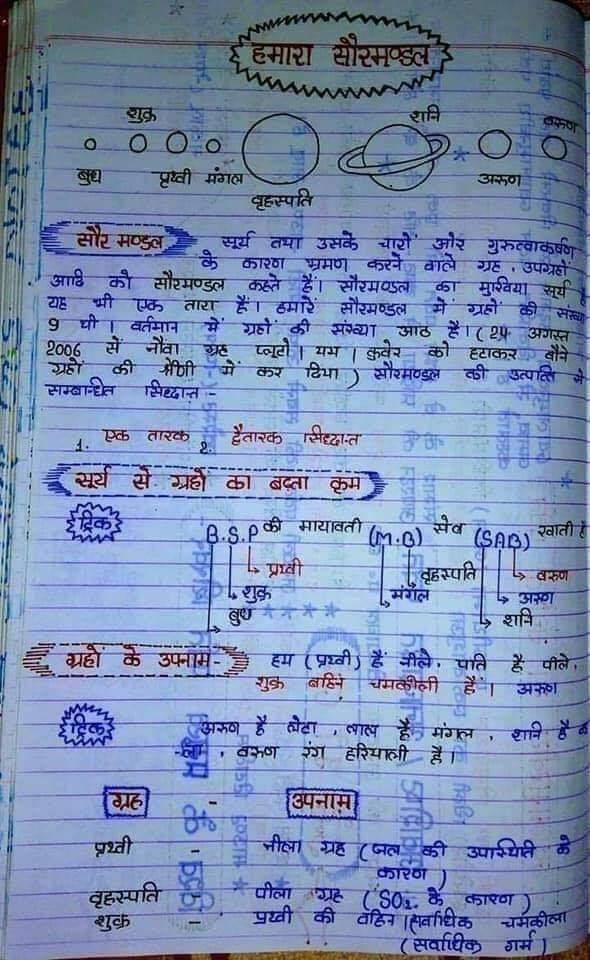 हमारा सौरमण्डल
शुक्र शनि वरुण
बुध पृथ्वी मंगल अरुण
वृहस्पति
सौर मण्डल सूर्य तथा उसके चारो ओर गुरुत्वाकर्षण
के कारण भ्रमण करने वाले ग्रह, उपग्रहो
आदि को सौरमण्डल कहते हैं। सौरमण्डल का मुखिया सूर्य है
यह भी एक तारा है। हमारे सौरमण्डल में ग्रहों की संख्या
9 थी। वर्तमान में ग्रहों की संख्या आठ है। (24 अगस्त
2006 से नौवा ग्रह प्लूटो। यम। कुवेर को हटाकर बौने
ग्रहों की श्रेणी में कर दिया) सौरमण्डल की उत्पत्ति से
सम्बन्धित सिध्दान्त :-
1. एक तारक 2. द्वैतारक सिध्दान्त
सूर्य से ग्रहो का बढता क्रम
ट्रिक B.S.P की मायावती (M.B) सेब (SAB) खाती है
पृथ्वी वृहस्पति वरुण
शुक्र मंगल अरुण
बुध शनि
ग्रहों के उपनाम- हम (पृथ्वी) हैं नीले, पति है पीले,
शुक्र बहिन चमकीली है। अरुण
ट्रिक अरुण है लेटा, लाल है मंगल, शनि है क
-ला, वरुण रंग हरियाली है।
ग्रह - उपनाम
पृथ्वी - नीला ग्रह (जल की उपस्थिति के
कारण)
वृहस्पति - पीला ग्रह (SO₂ के कारण)
शुक्र - पृथ्वी की वहिन।सर्वाधिक चमकीला
(सर्वाधिक गर्म)